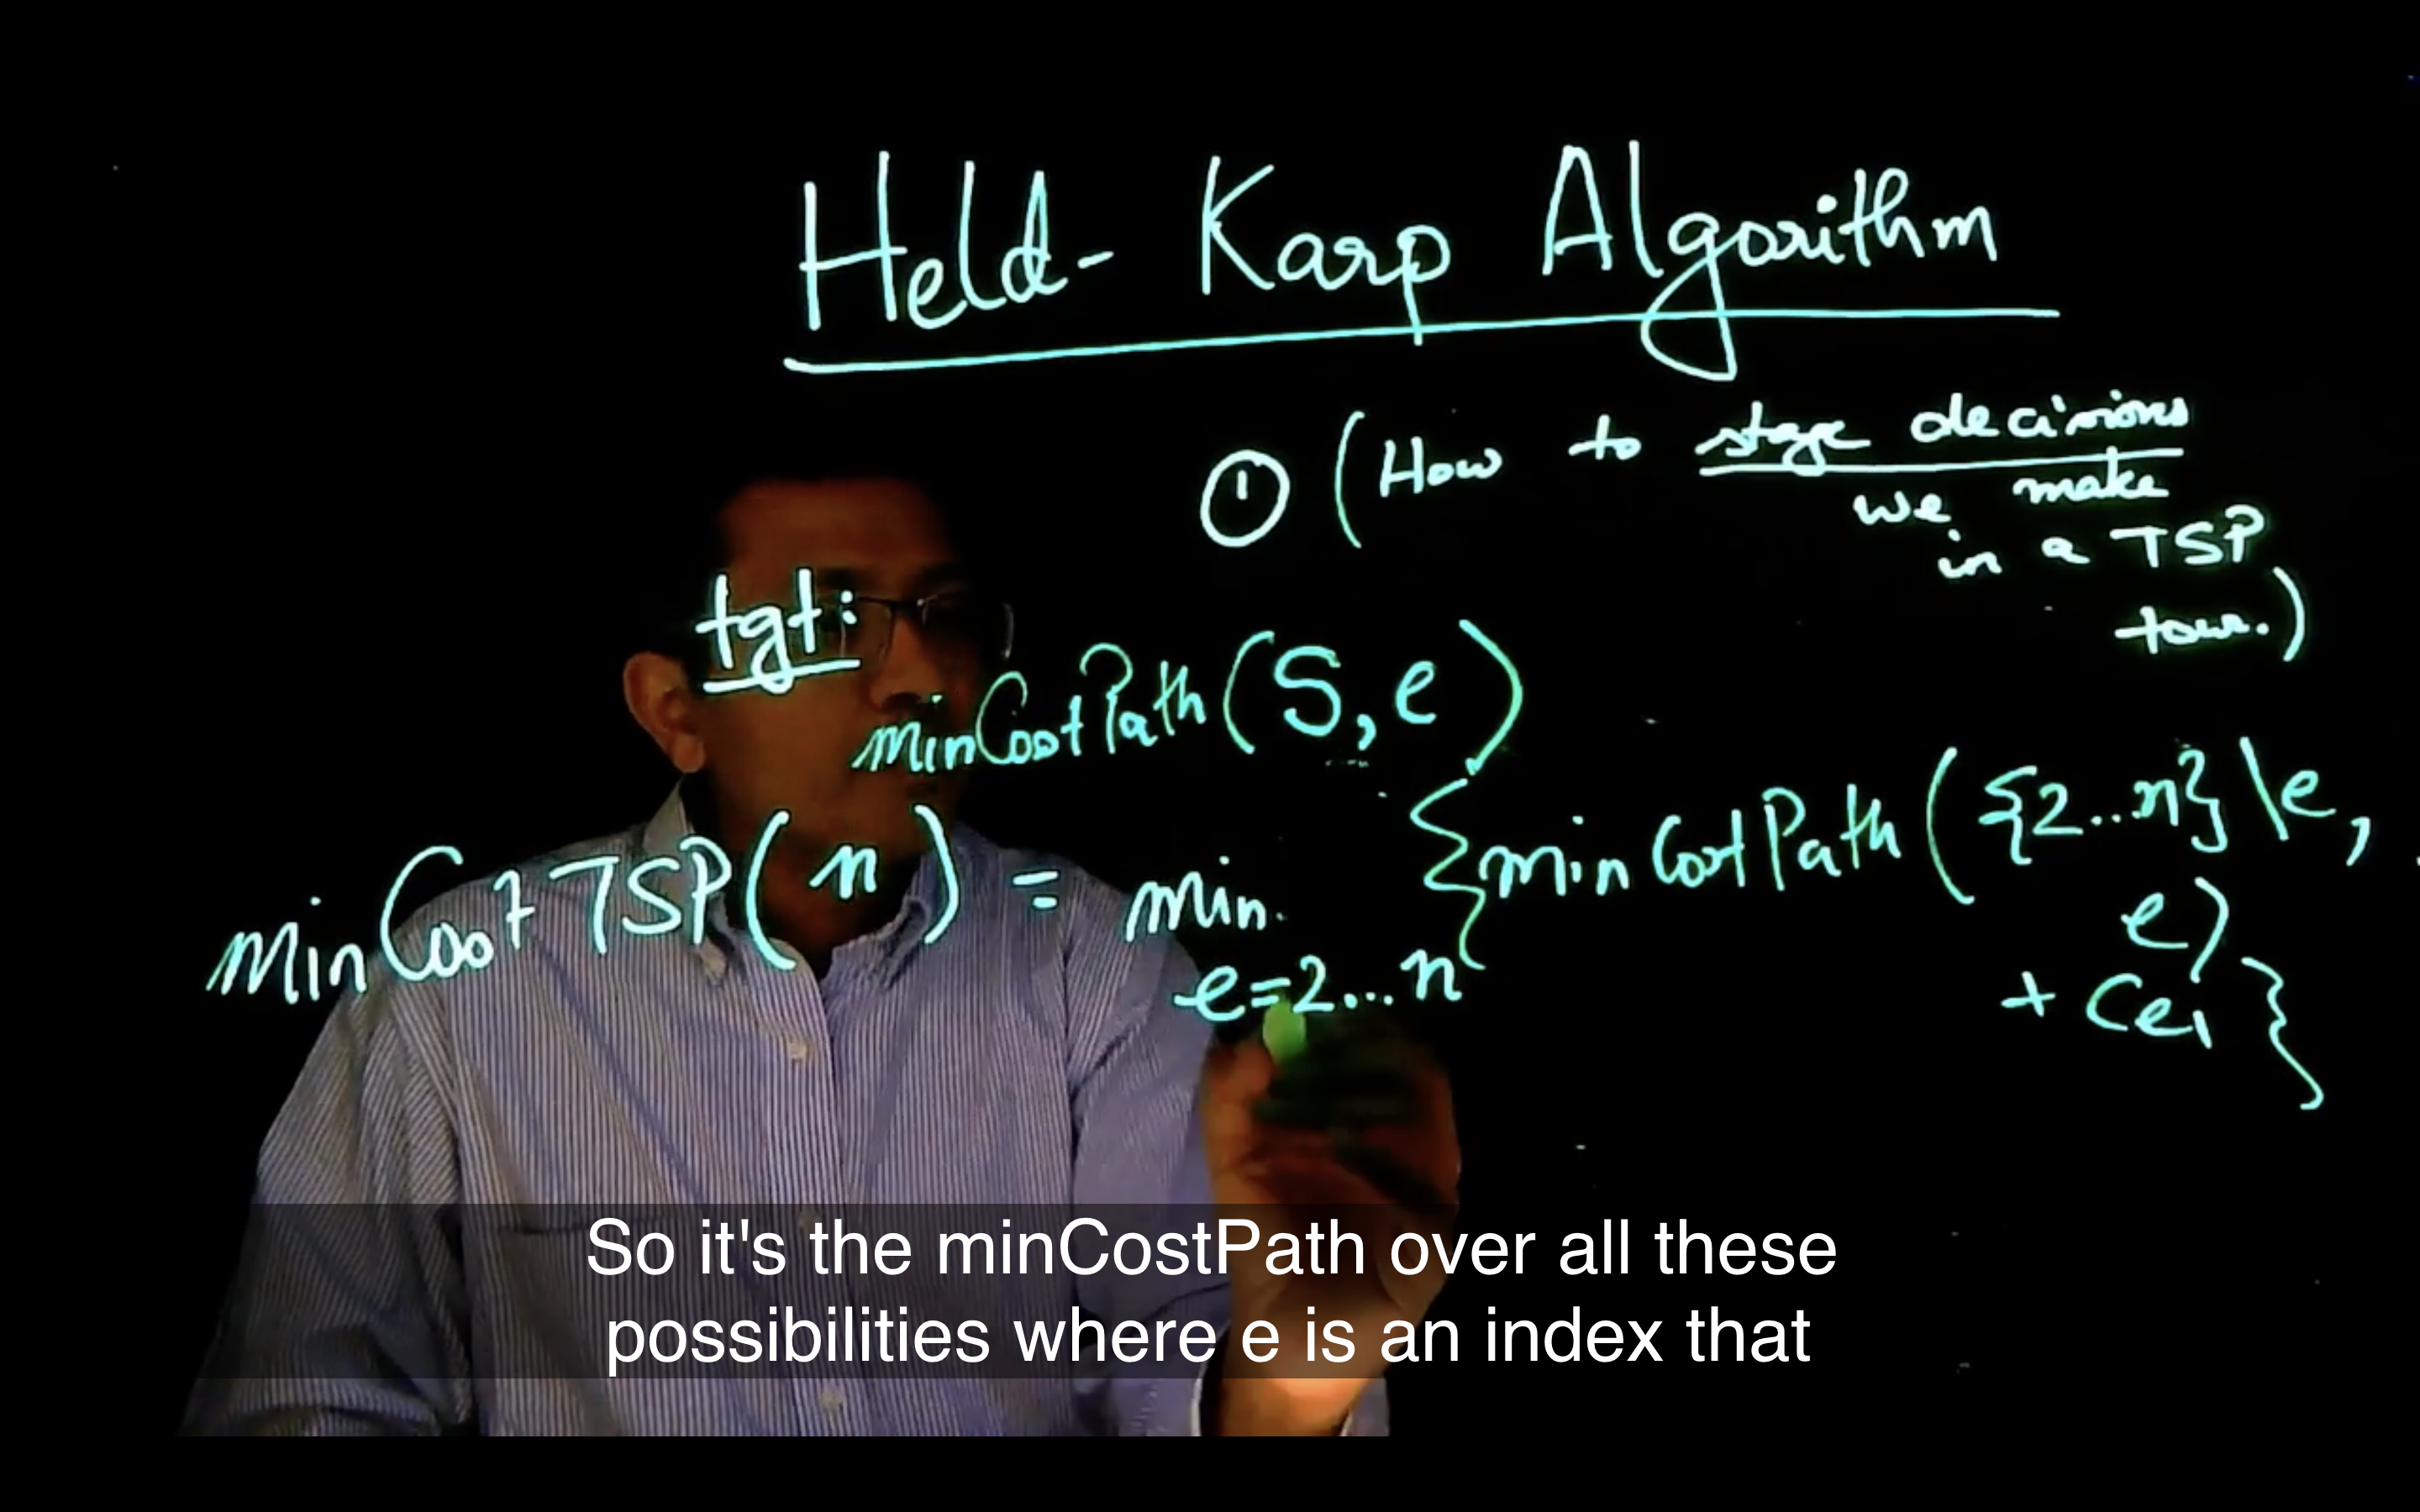 Held- Karp Algorithm
① (How to stage decisions
we make
in a TSP
tour.)
tgt:
minCostPath(S, e)
minCostTSP(n) = min. {minCostPath({2..n}\e,
e=2...n
e)
+ Ce1}
So it's the minCostPath over all these
possibilities where e is an index that